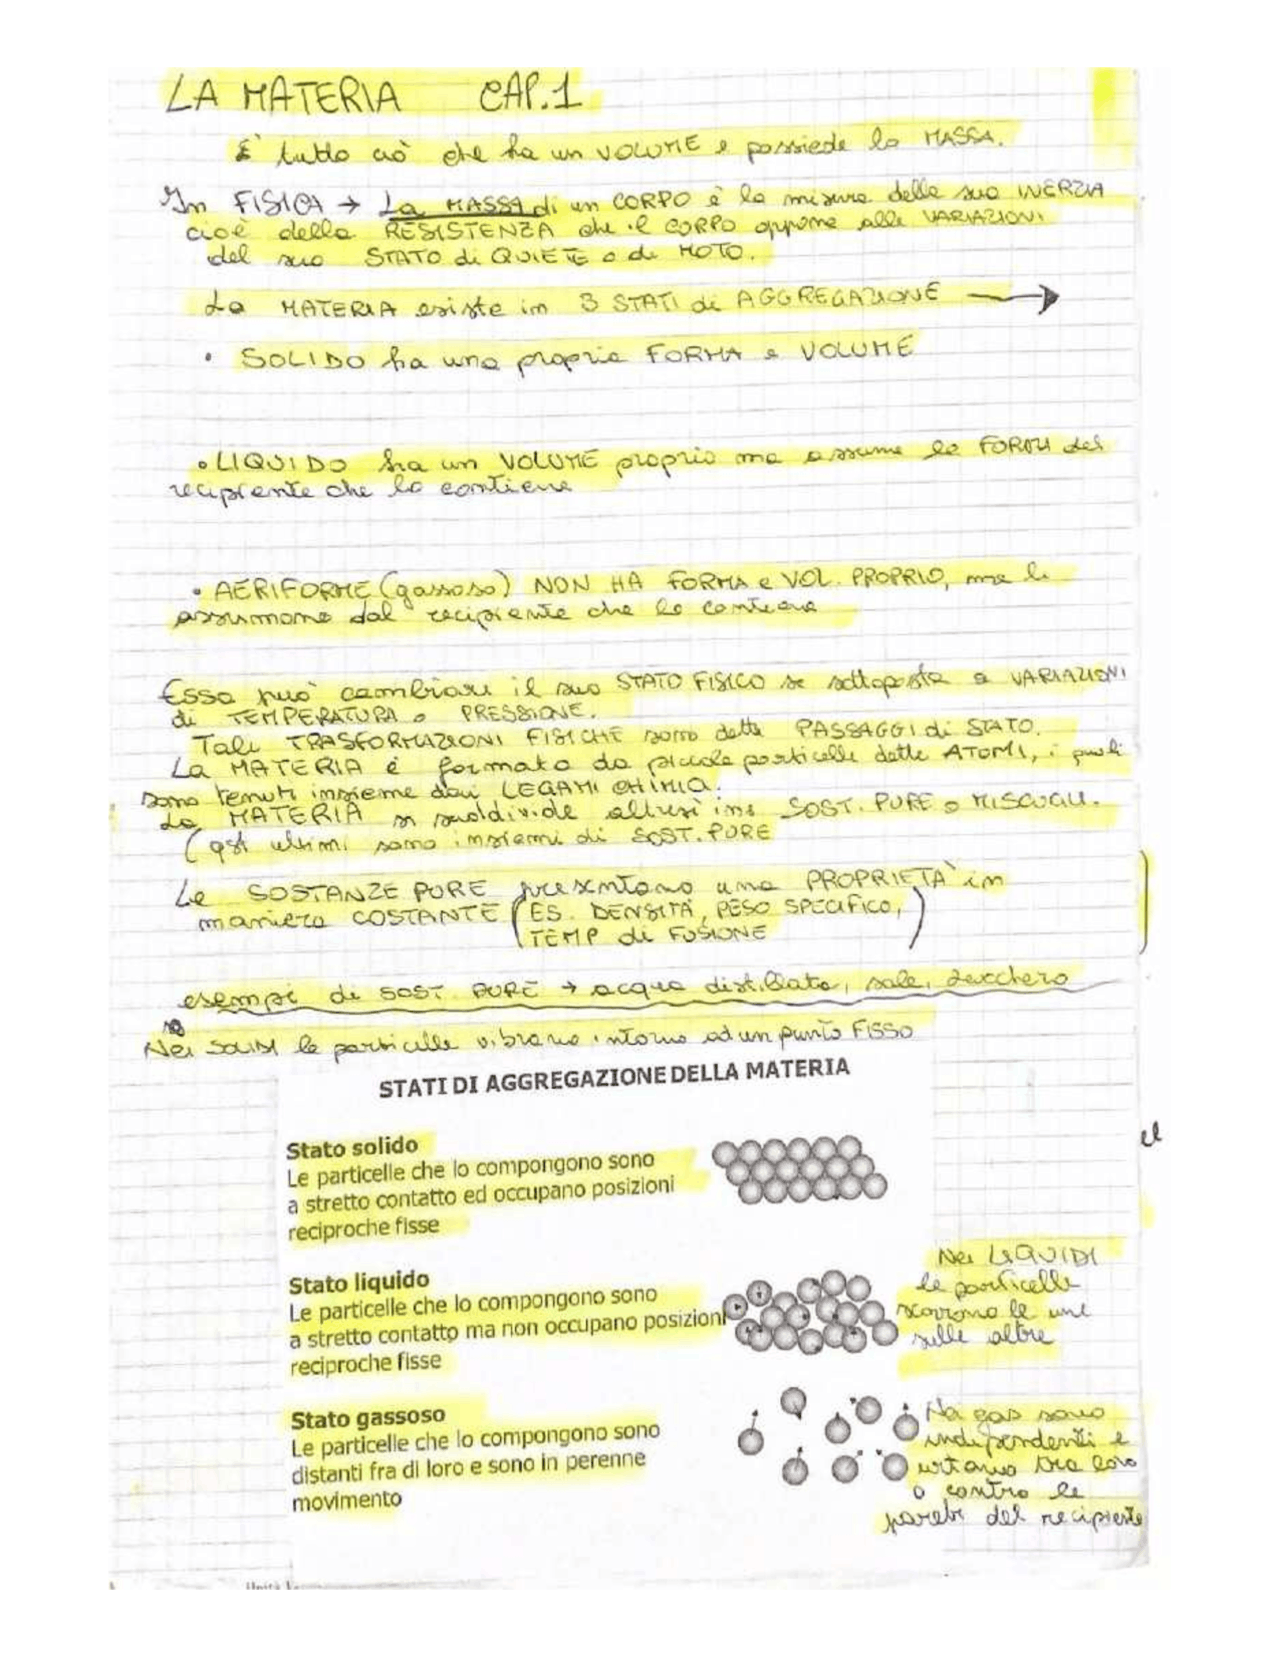 LA MATERIA CAP.1
È tutto ciò che ha un VOLUME e possiede la MASSA.
In FISICA → La MASSA di un CORPO è la misura della sua INERZIA
cioè della RESISTENZA che il CORPO oppone alle VARIAZIONI
del suo STATO di QUIETE o di MOTO.
La MATERIA esiste in 3 STATI di AGGREGAZIONE →
• SOLIDO ha una propria FORMA e VOLUME
• LIQUIDO ha un VOLUME proprio ma assume la FORMA del
recipiente che lo contiene
• AERIFORME (gassoso) NON HA FORMA e VOL. PROPRIO, ma li
assumono dal recipiente che lo contiene
Essa può cambiare il suo STATO FISICO se sottoposta a VARIAZIONI
di TEMPERATURA o PRESSIONE.
Tali TRASFORMAZIONI FISICHE sono dette PASSAGGI di STATO.
La MATERIA è formata da piccole particelle dette ATOMI, i quali
sono tenuti insieme dai LEGAMI CHIMICI.
La MATERIA si suddivide altresì in: SOST. PURE o MISCUGLI.
(qst ultimi sono insiemi di SOST. PURE
Le SOSTANZE PURE presentano una PROPRIETÀ in
maniera COSTANTE (ES. DENSITÀ, PESO SPECIFICO,
TEMP di FUSIONE)
esempi di SOST. PURE → acqua distillata, sale, zucchero
Nei SOLIDI le particelle vibrano intorno ad un punto FISSO
STATI DI AGGREGAZIONE DELLA MATERIA
Stato solido
Le particelle che lo compongono sono
a stretto contatto ed occupano posizioni
reciproche fisse
Stato liquido
Le particelle che lo compongono sono
a stretto contatto ma non occupano posizioni
reciproche fisse
Nei LIQUIDI
le particelle
scorrono le une
sulle altre
Stato gassoso
Le particelle che lo compongono sono
distanti fra di loro e sono in perenne
movimento
Nei gas sono
indipendenti e
urtano tra loro
o contro le
pareti del recipiente